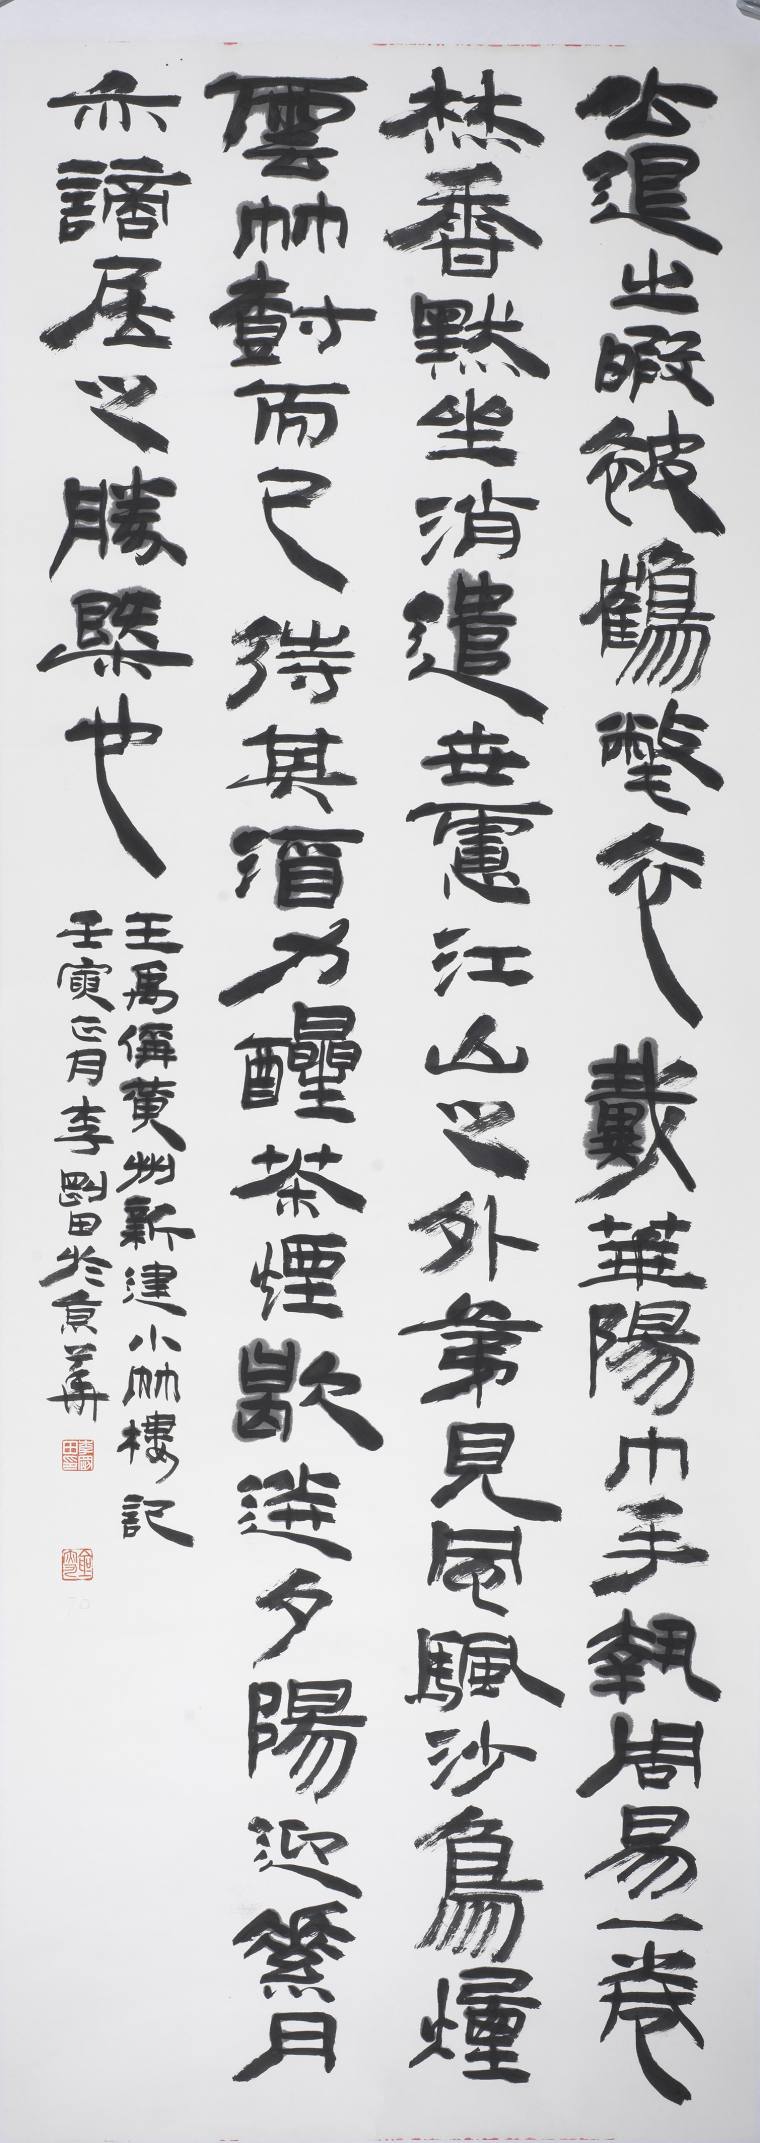 公退之暇被鶴氅衣戴華陽巾手執周易一卷
焚香默坐消遣世慮江山之外第見風颿沙鳥煙
雲竹樹而已待其酒力醒茶煙歇送夕陽迎素月
亦謫居之勝槩也
王禹偁黄州新建小竹樓記
壬寅正月李剛田於京華